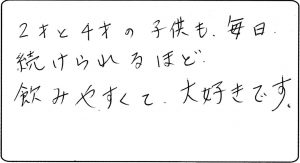 2才と4才の子供も、毎日
続けられるほど
飲みやすくて、大好きです。